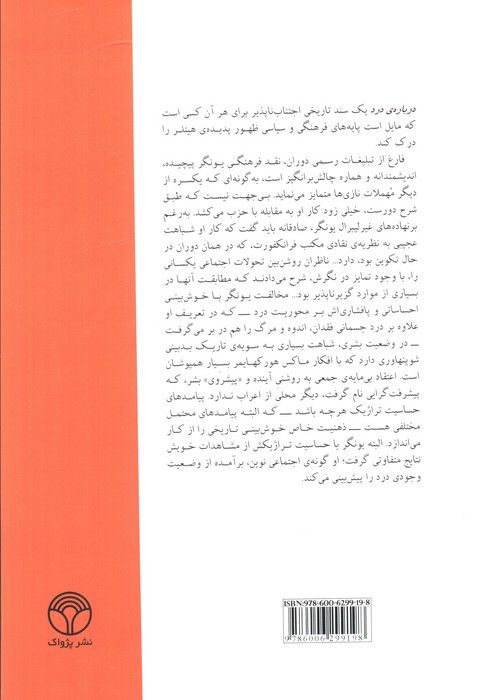 درباره‌ی درد یک سند تاریخی اجتناب‌ناپذیر برای هر آن کسی است
که مایل است پایه‌های فرهنگی و سیاسی ظهور پدیده‌ی هیتلر را
درک کند.
فارغ از تبلیغات رسمی دوران، نقد فرهنگی یونگر پیچیده،
اندیشمندانه و هماره چالش‌برانگیز است، به‌گونه‌ای که یکسره از
دیگر مُهملات نازی‌ها متمایز می‌نماید. بی‌جهت نیست که طبق
شرح دورست، خیلی زود کار او به مقابله با حزب می‌کشد. به‌رغم
برنهاده‌های غیرلیبرال یونگر، صادقانه باید گفت که کار او شباهت
عجیبی به نظریه‌ی نقادی مکتب فرانکفورت، که در همان دوران در
حال تکوین بود، دارد... ناظران روشن‌بین تحولات اجتماعی یکسانی
را، با وجود تمایز در نگرش، شرح می‌دادند که مطابقت آنها در
بسیاری از موارد گزیرناپذیر بود... مخالفت یونگر با خوش‌بینی
احساساتی و پافشاری‌اش بر محوریت درد ـــ که در تعریف او
علاوه بر درد جسمانی فقدان، اندوه و مرگ را هم در بر می‌گرفت
ـــ در وضعیت بشری، شباهت بسیاری به سویه‌ی تاریک بدبینی
شوپنهاوری دارد که با افکار ماکس هورکهایمر بسیار همپوشان
است. اعتقاد بی‌مایه‌ی جمعی به روشنی آینده و «پیشروی» بشر، که
پیشرفت‌گرایی نام گرفت، دیگر محلی از اعراب ندارد. پیامدهای
حساسیت تراژیک هرچه باشد ـــ که البته پیامدهای محتمل
مختلفی هست ـــ ذهنیت خاص خوش‌بینی تاریخی را از کار
می‌اندازد. البته یونگر با حساسیت تراژیکش از مشاهدات خویش
نتایج متفاوتی گرفت؛ او گونه‌ی اجتماعی نوین، برآمده از وضعیت
وجودی درد را پیش‌بینی می‌کند.
ISBN: 978-600-6299-19-8
9786006299198
نشر پژواک